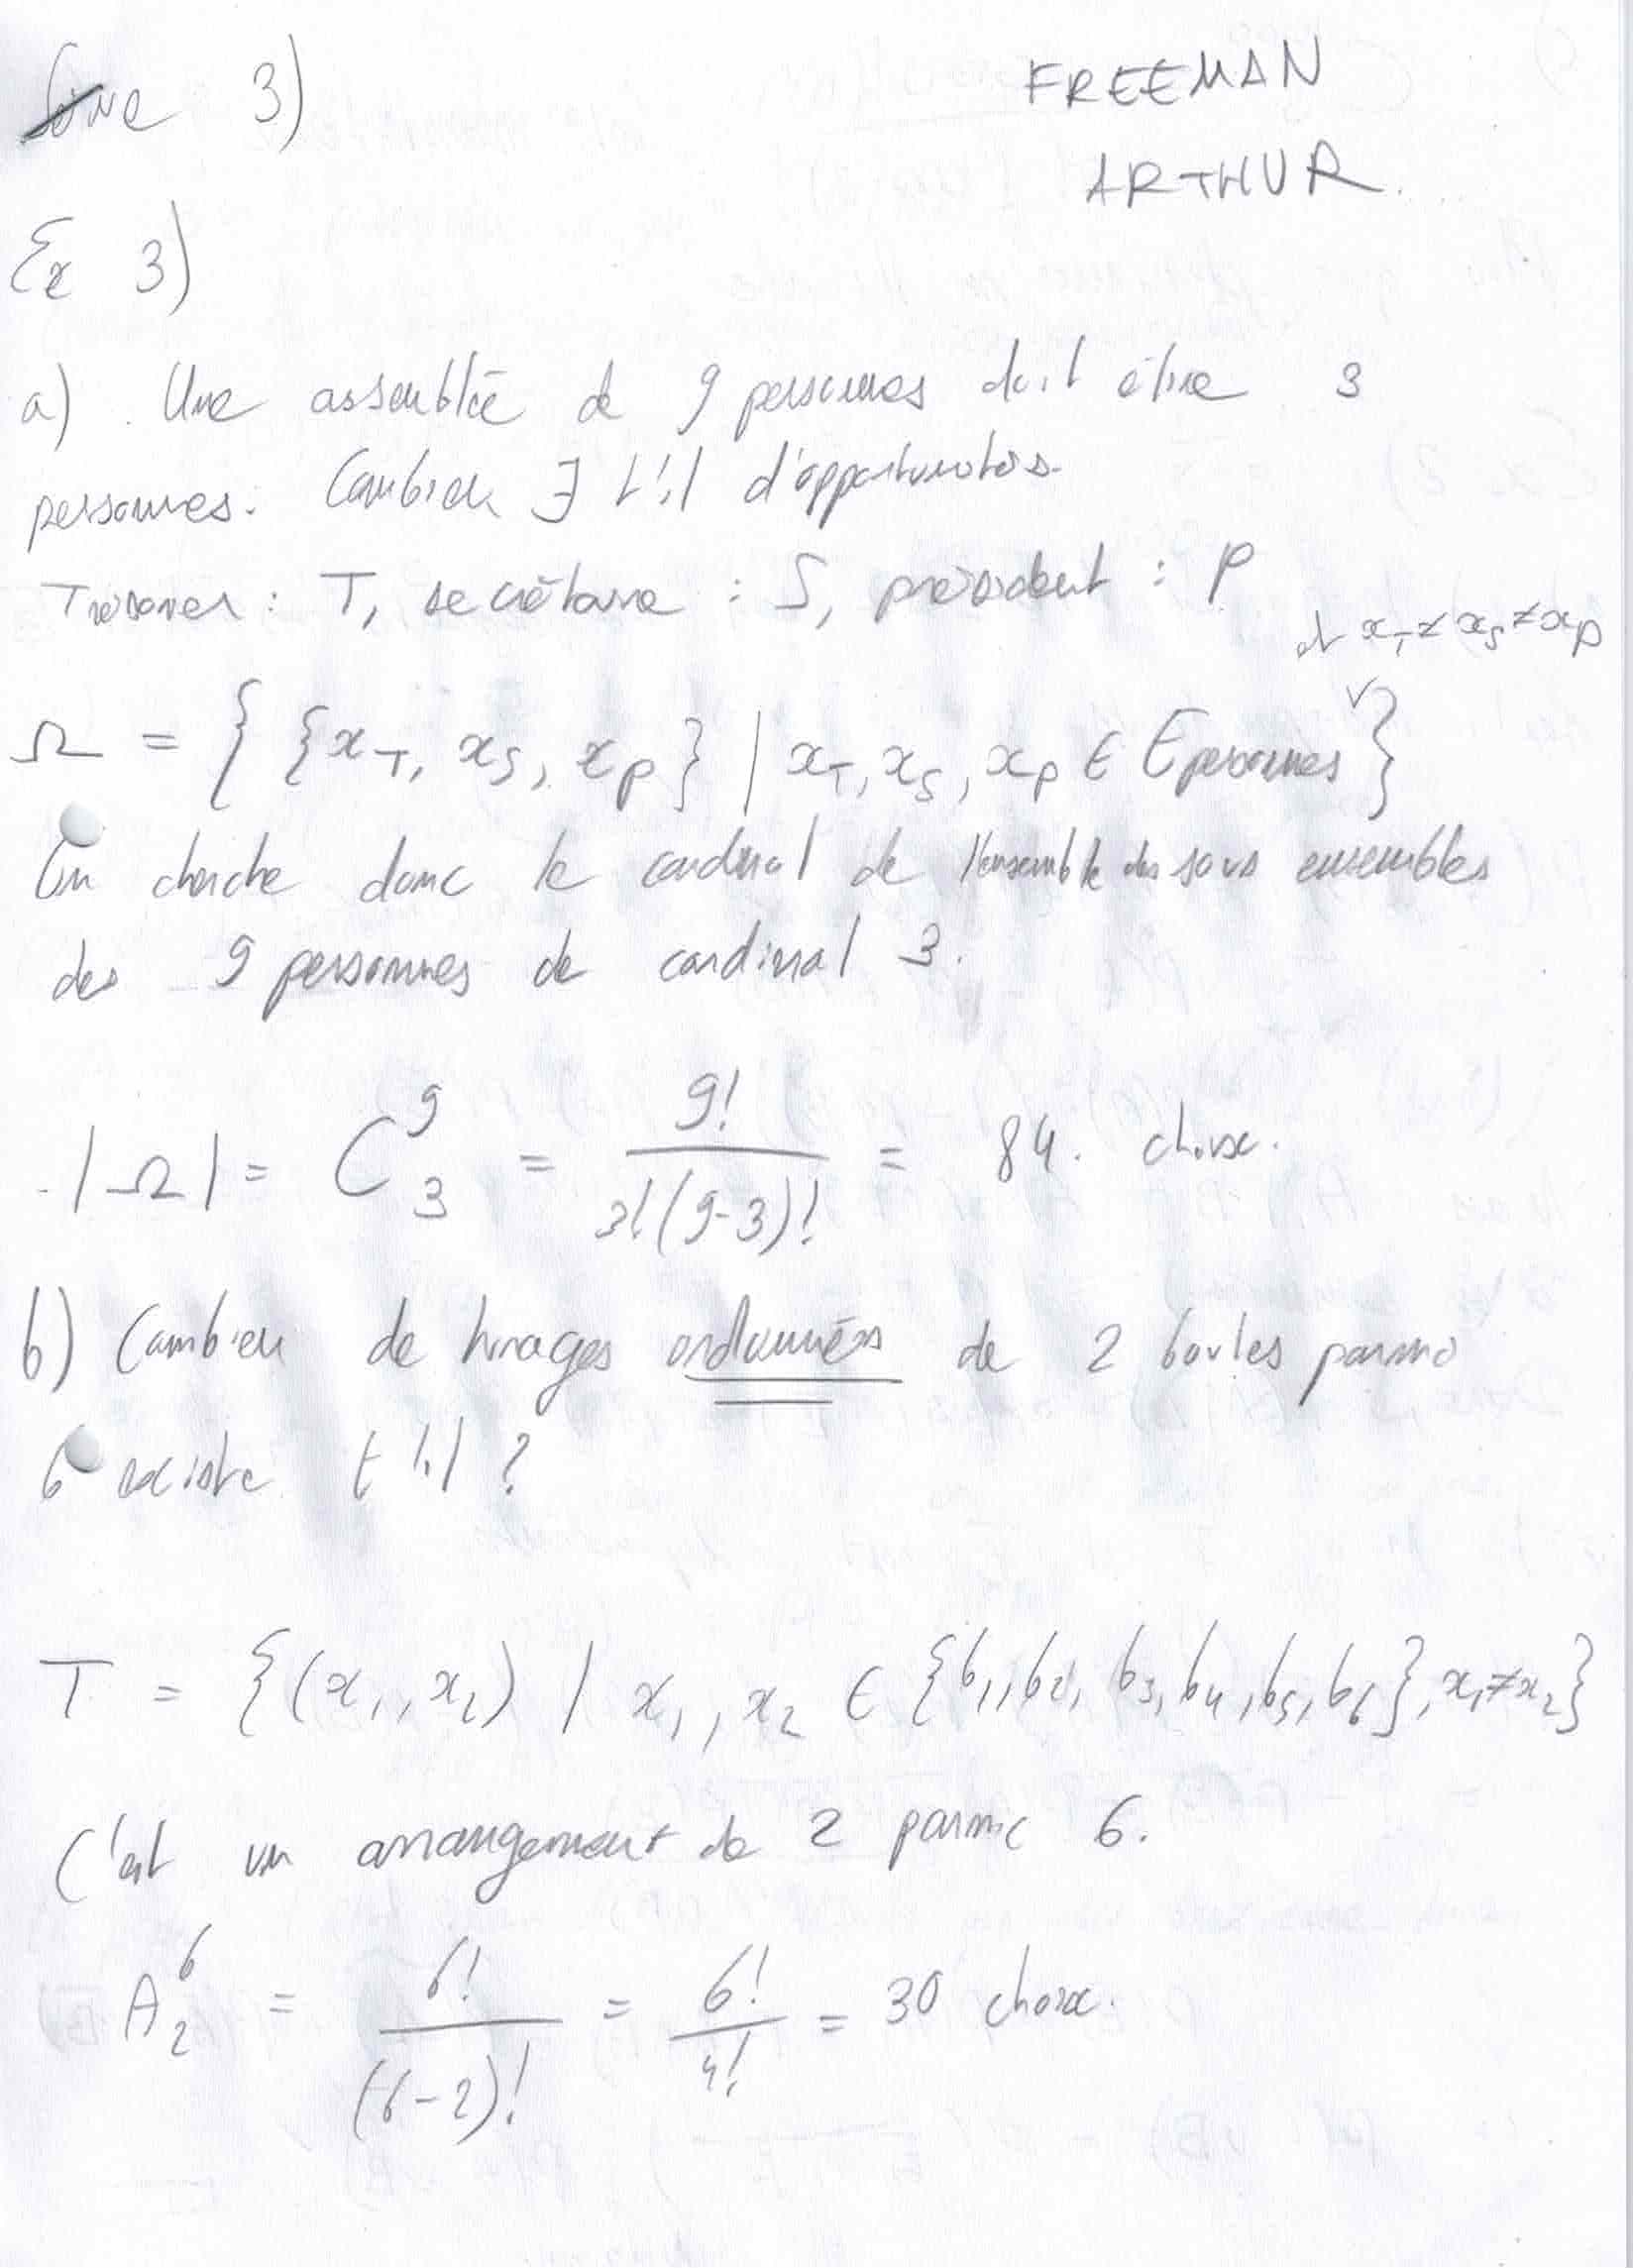 3)
FREEMAN
ARTHUR.
Ex 3)
a). Une assemblée de 9 personnes doit élire 3
personnes. Combien ∃ t'il d'opportunités.
Trésorier : T, secrétaire : S, président : P
et x_T ≠ x_S ≠ x_P
Ω = { {x_T, x_S, x_P} | x_T, x_S, x_P ∈ E personnes }
On cherche donc le cardinal de l'ensemble des sous ensembles
des 9 personnes de cardinal 3.
|Ω| = C^9_3 = 9! / 3!(9-3)! = 84. choix.
b) Combien de tirages ordonnés de 2 boules parmi
6 existe t'il ?
T = {(x_1, x_2) | x_1, x_2 ∈ {b_1, b_2, b_3, b_4, b_5, b_6}, x_1 ≠ x_2}
C'est un arrangement de 2 parmi 6.
A^6_2 = 6! / (6-2)! = 6! / 4! = 30 choix.